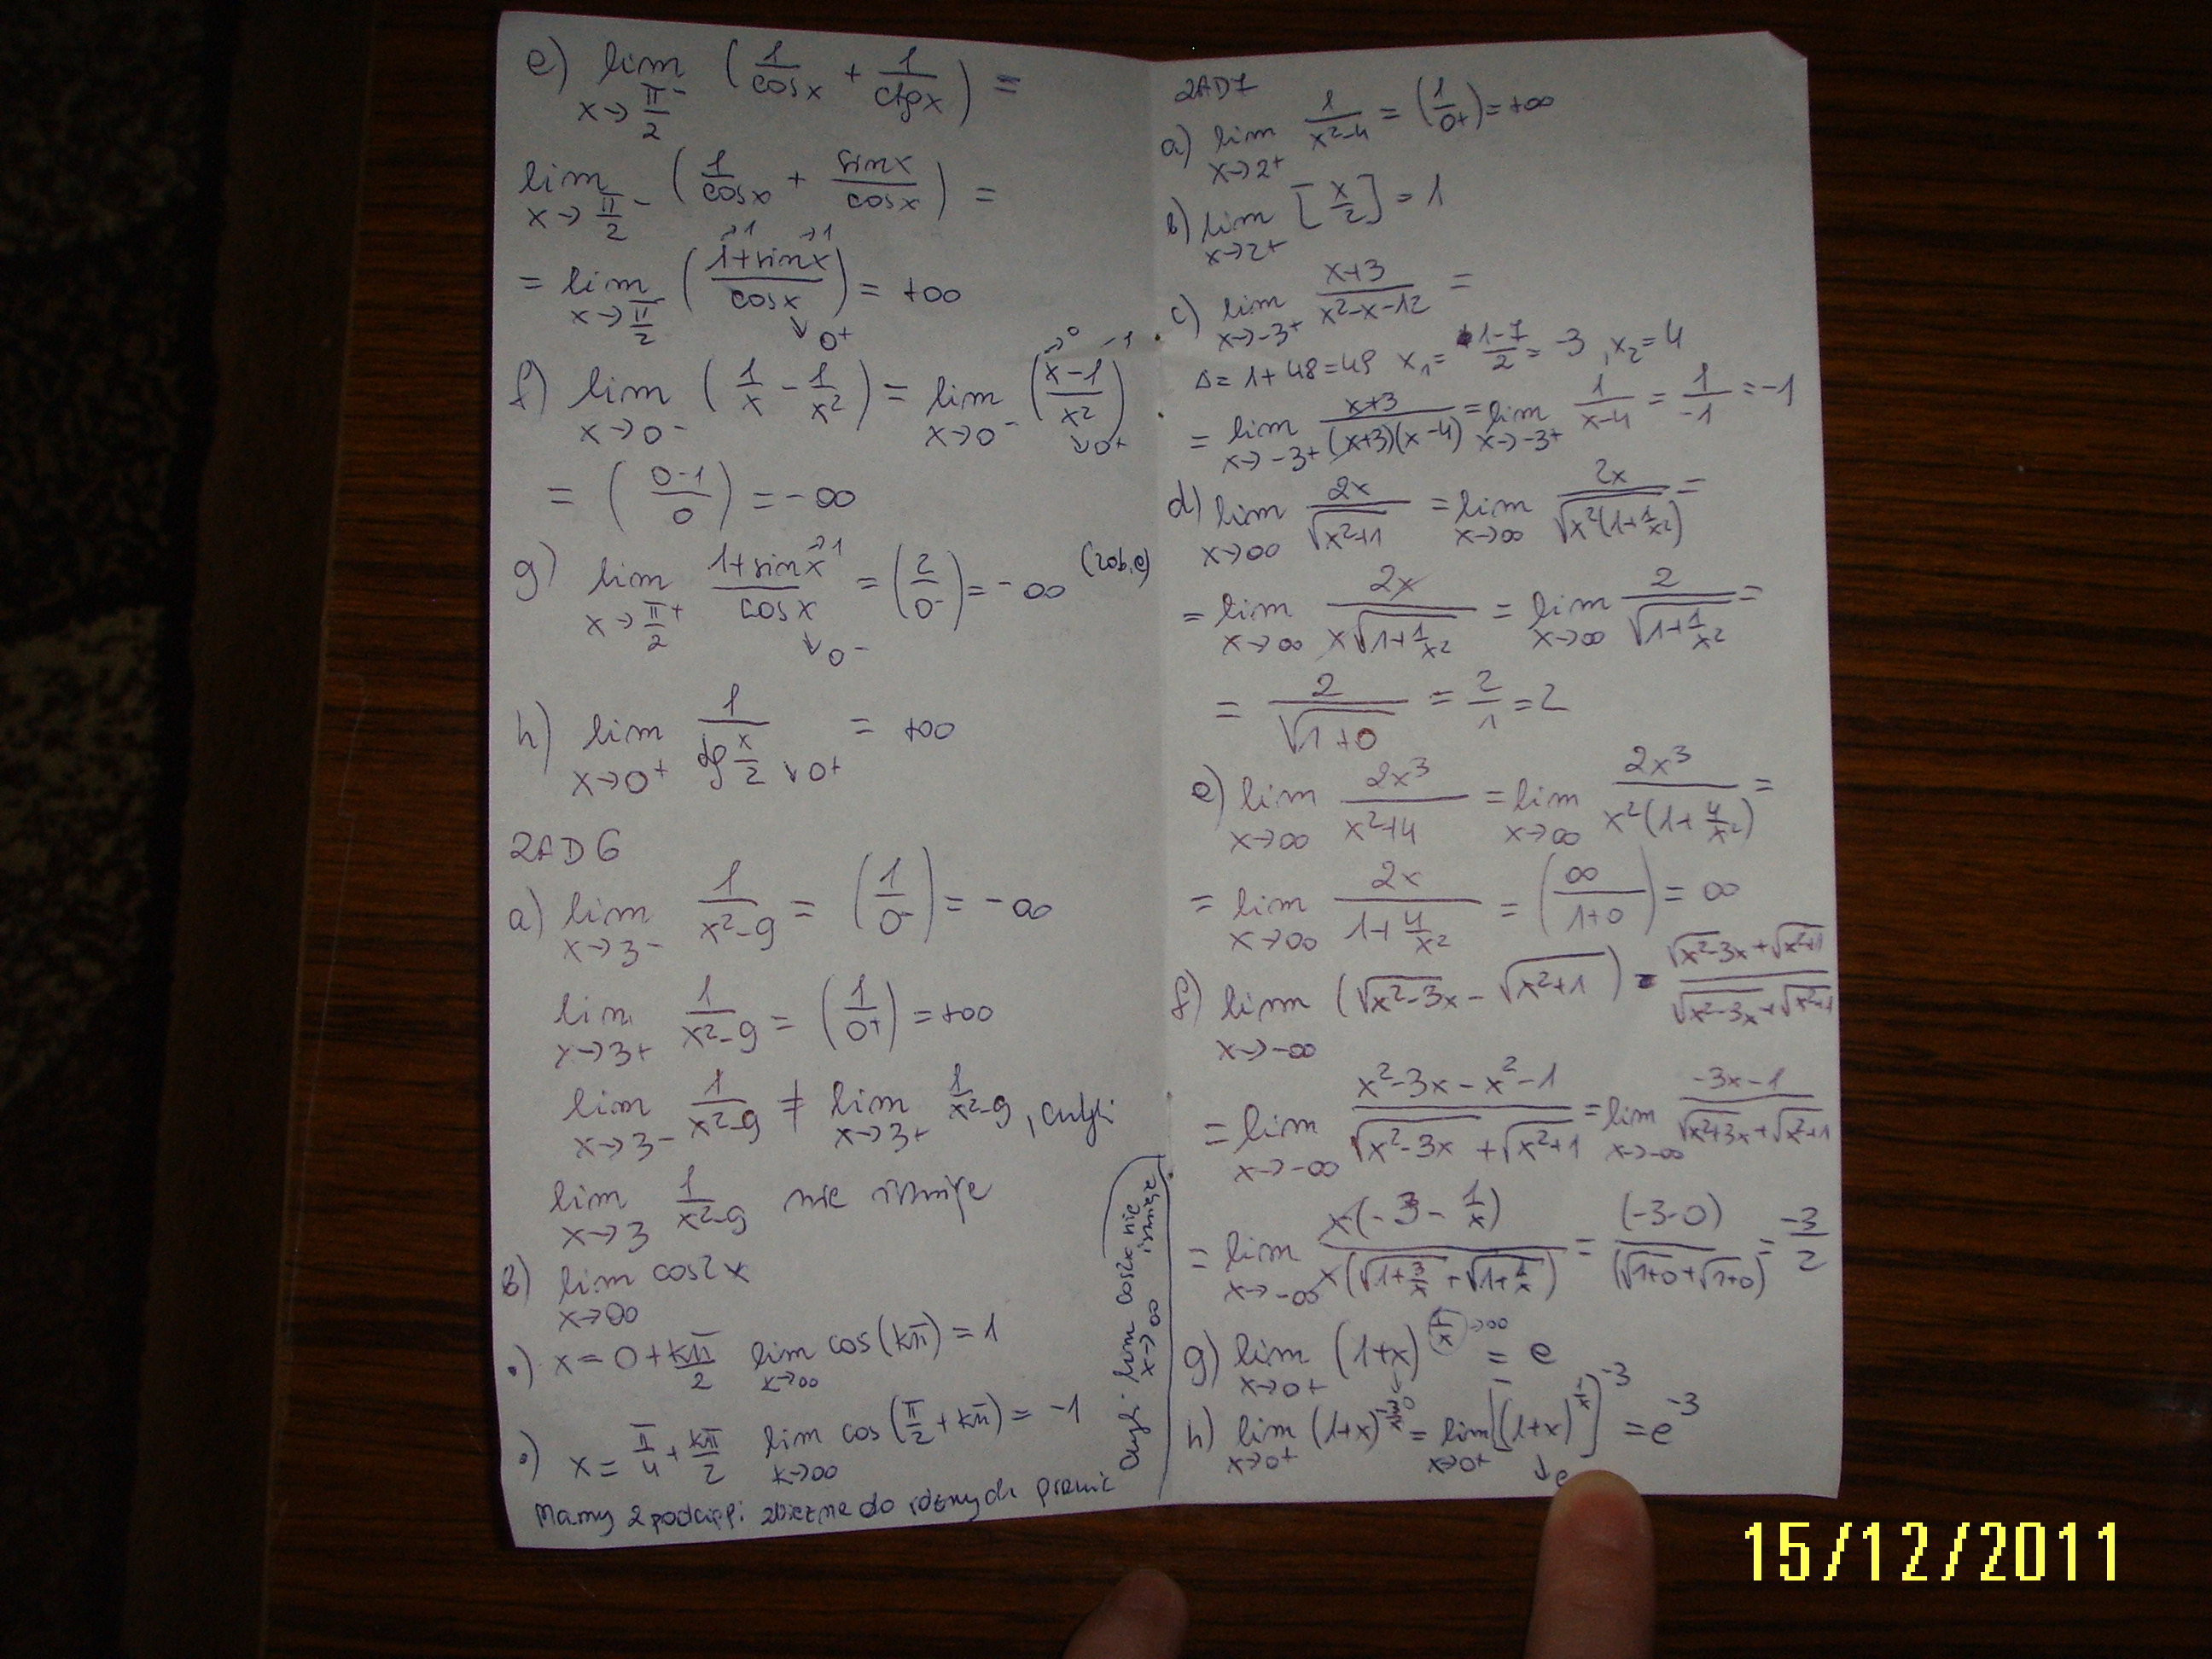 e) lim x→π/2⁻ (1/cosx + 1/ctgx) =
lim x→π/2⁻ (1/cosx + sinx/cosx) =
→1 →1
= lim x→π/2⁻ ((1+sinx)/cosx) = +∞
↘0⁺
→0 -1
f) lim x→0⁻ (1/x - 1/x²) = lim x→0⁻ ((x-1)/x²)
↘0⁺
= ((0-1)/0) = -∞
g) lim x→π/2⁺ (1+sinx→1)/cosx = (2/0⁻) = -∞ (zob. e)
↘0⁻
h) lim x→0⁺ 1/(tg x/2) ↘0⁺ = +∞
ZAD 6
a) lim x→3⁻ 1/(x²-9) = (1/0⁻) = -∞
lim x→3⁺ 1/(x²-9) = (1/0⁺) = +∞
lim x→3⁻ 1/(x²-9) ≠ lim x→3⁺ 1/(x²-9), czyli
lim x→3 1/(x²-9) nie istnieje
b) lim x→∞ cos2x
•) x = 0 + kπ/2 lim k→∞ cos(kπ) = 1
•) x = π/4 + kπ/2 lim k→∞ cos(π/2 + kπ) = -1
Mamy 2 podciągi zbieżne do różnych granic
czyli lim x→∞ cos2x nie istnieje
ZAD 7
a) lim x→2⁺ 1/(x²-4) = (1/0⁺) = +∞
b) lim x→2⁺ [x/2] = 1
c) lim x→-3⁺ (x+3)/(x²-x-12) =
Δ = 1+48 = 49 x₁ = (1-7)/2 = -3, x₂ = 4
= lim x→-3⁺ (x+3)/((x+3)(x-4)) = lim x→-3⁺ 1/(x-4) = 1/-1 = -1
d) lim x→∞ 2x/√(x²+1) = lim x→∞ 2x/√(x²(1+1/x²)) =
= lim x→∞ 2x/(x√(1+1/x²)) = lim x→∞ 2/√(1+1/x²) =
= 2/√(1+0) = 2/1 = 2
e) lim x→∞ 2x³/(x²+4) = lim x→∞ 2x³/(x²(1+4/x²)) =
= lim x→∞ 2x/(1+4/x²) = (∞/(1+0)) = ∞
f) lim x→-∞ (√(x²-3x) - √(x²+1)) · (√(x²-3x)+√(x²+1))/(√(x²-3x)+√(x²+1))
= lim x→-∞ (x²-3x-x²-1)/(√(x²-3x)+√(x²+1)) = lim x→-∞ (-3x-1)/(√(x²+3x)+√(x²+1))
= lim x→-∞ x(-3-1/x)/(x(√(1+3/x)+√(1+1/x))) = (-3-0)/(√(1+0)+√(1+0)) = -3/2
g) lim x→0⁺ (1+x)^(1/x) →∞ = e
h) lim x→0⁺ (1+x) = lim x→0⁺ [(1+x)^(1/x)]⁻³ = e⁻³
↘e
15/12/2011